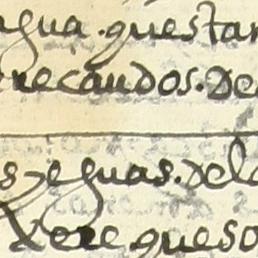 ngua. questan
recaudos. de
s yeguas. dela
Xere queso